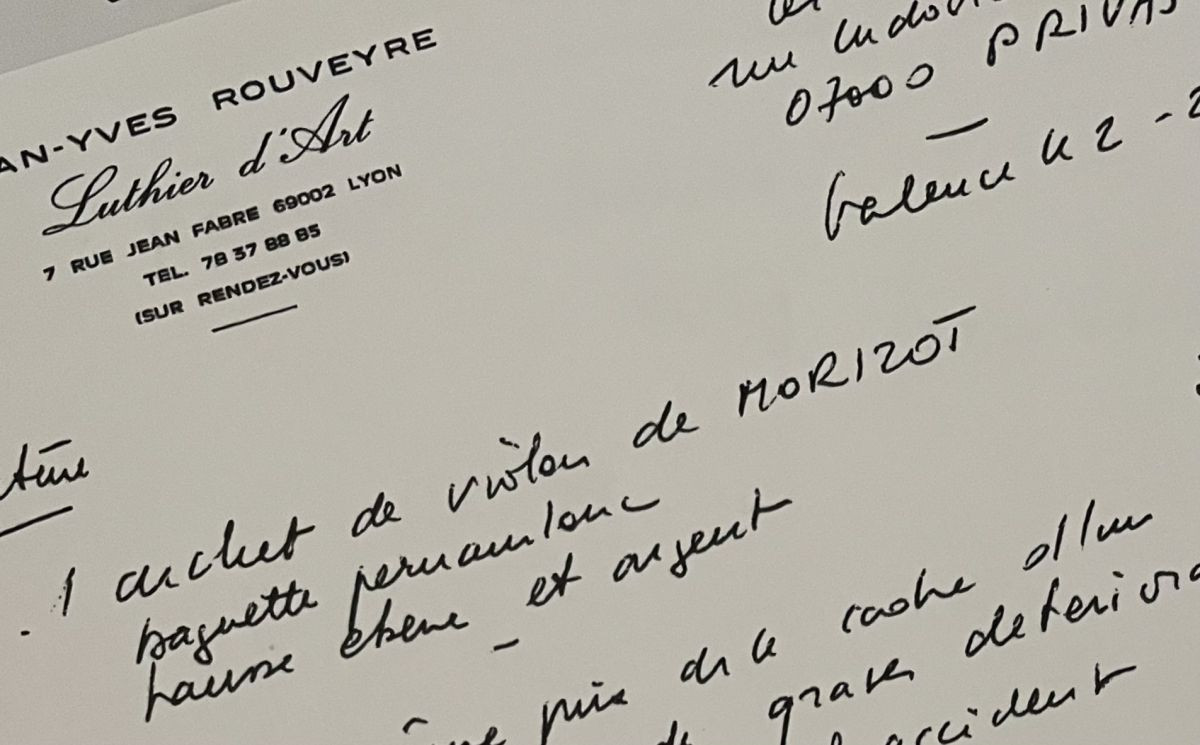 AN-YVES ROUVEYRE
Luthier d'Art
7 RUE JEAN FABRE 69002 LYON
TEL. 78 37 88 85
(SUR RENDEZ-VOUS)
07000 PRIVAS
Valence le 2 - 2
1 archet de violon de MORIZOT
baguette pernambouc
hausse ébène et argent
prix de ce
de graves
accident